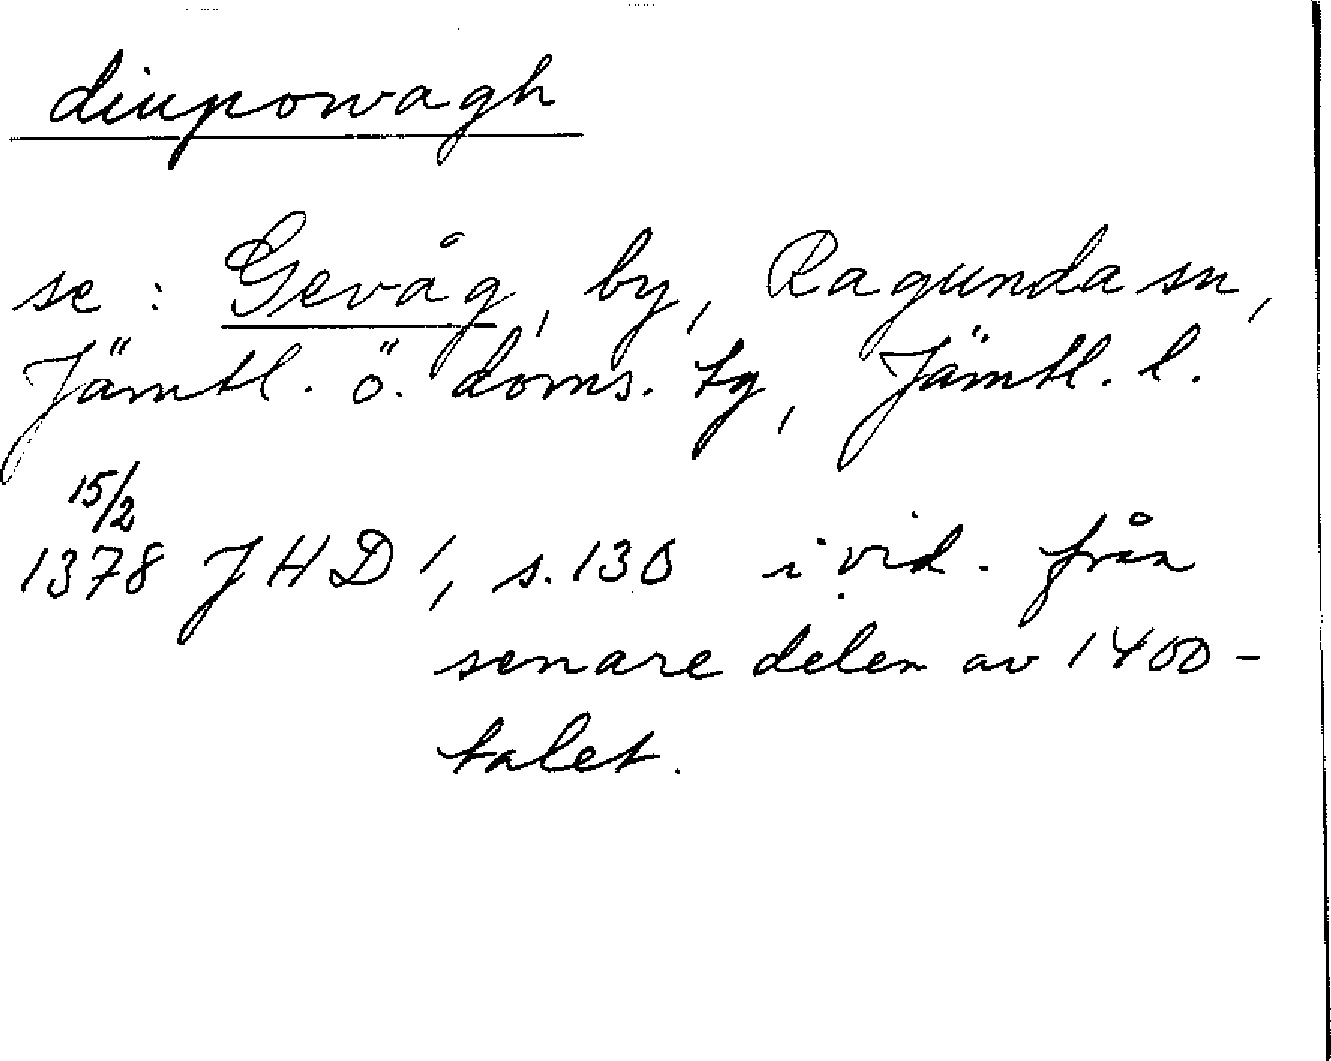 diupowagh
se: Gevåg, by, Ragunda sn,
Jämtl. ö. doms. tg, Jämtl. l.
15/2
1378 JHD 1, s. 130 i vid. från
senare delen av 1400-
talet.